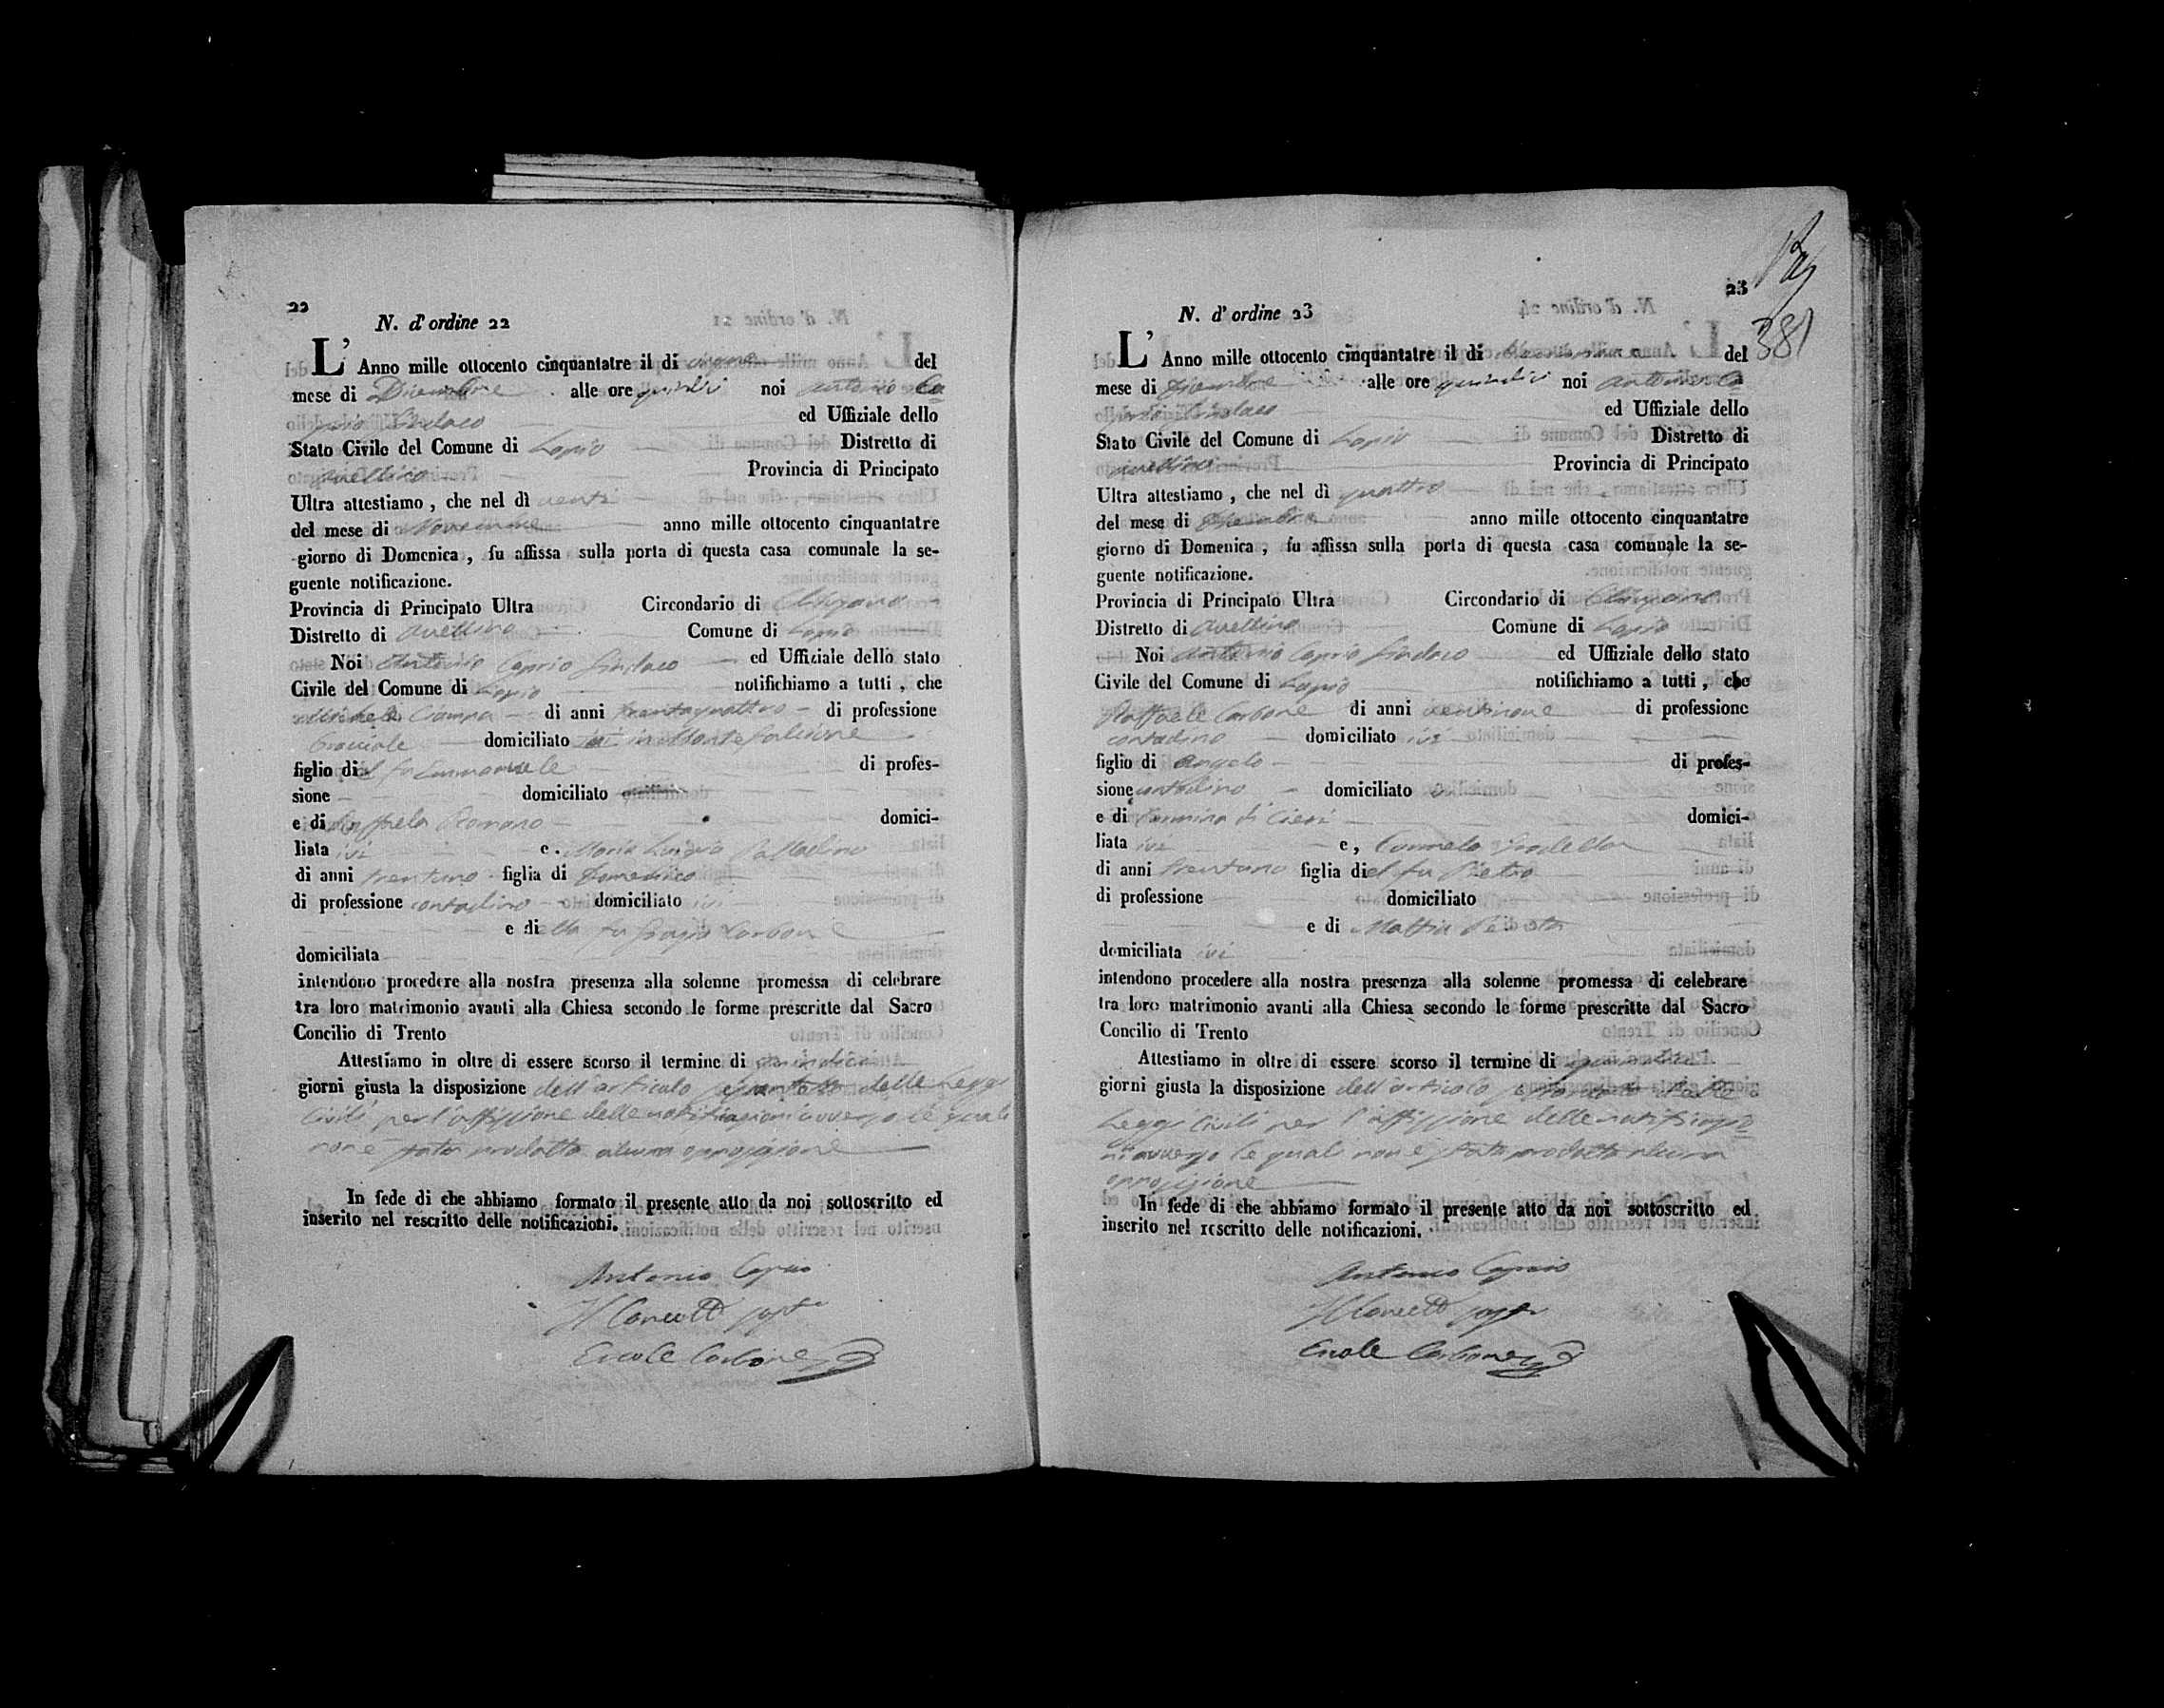 22
N. d' ordine 22
L' Anno mille ottocento cinquantatre il di del
mese di Dicembre alle ore quindici noi Antonio Ca
prio Sindaco ed Uffiziale dello
Stato Civile del Comune di Lapio Distretto di
Avellino Provincia di Principato
Ultra attestiamo , che nel dì venti
del mese di Novembre anno mille ottocento cinquantatre
giorno di Domenica , fu affissa sulla porta di questa casa comunale la se-
guente notificazione.
Provincia di Principato Ultra Circondario di Chiusano
Distretto di Avellino Comune di Lapio
Noi Antonio Caprio Sindaco ed Uffiziale dello stato
Civile del Comune di Lapio notifichiamo a tutti , che
Michele Ciampa di anni trentaquattro di professione
domiciliato in Montefalcione
figlio del fu Emmanuele di profes-
sione domiciliato
e di Raffaela Romano domici-
liata ivi e Maria Luigia Palladino
di anni trentuno figlia di Domenico
di professione contadino domiciliato ivi
e della fu Carbone
domiciliata
intendono procedere alla nostra presenza alla solenne promessa di celebrare
tra loro matrimonio avanti alla Chiesa secondo le forme prescritte dal Sacro
Concilio di Trento
Attestiamo in oltre di essere scorso il termine di quindici
giorni giusta la disposizione dell'articolo delle Leggi
Civili per l'affissione delle notificazioni avverso le quali
non è stata prodotta alcuna opposizione
In fede di che abbiamo formato il presente atto da noi sottoscritto ed
inserito nel rescritto delle notificazioni.
Antonio Caprio
Ercole Carbone
23
381
N. d' ordine 23
L' Anno mille ottocento cinquantatre il di del
mese di Dicembre alle ore quindici noi Antonio Ca
prio Sindaco ed Uffiziale dello
Stato Civile del Comune di Lapio Distretto di
Avellino Provincia di Principato
Ultra attestiamo , che nel dì quattro
del mese di Dicembre anno mille ottocento cinquantatre
giorno di Domenica , fu affissa sulla porta di questa casa comunale la se-
guente notificazione.
Provincia di Principato Ultra Circondario di Chiusano
Distretto di Avellino Comune di Lapio
Noi Antonio Caprio Sindaco ed Uffiziale dello stato
Civile del Comune di Lapio notifichiamo a tutti , che
Raffaele Carbone di anni ventinove di professione
contadino domiciliato ivi
figlio di Angelo di profes-
sione contadino domiciliato
e di domici-
liata ivi e , Carmela
di anni trentuno figlia del fu Pietro
di professione domiciliato
e di Mattia
domiciliata ivi
intendono procedere alla nostra presenza alla solenne promessa di celebrare
tra loro matrimonio avanti alla Chiesa secondo le forme prescritte dal Sacro
Concilio di Trento
Attestiamo in oltre di essere scorso il termine di quindici
giorni giusta la disposizione dell'articolo delle
Leggi Civili per l'affissione delle notificazio
ni avverso le quali non è stata prodotta alcuna
opposizione
In fede di che abbiamo formato il presente atto da noi sottoscritto ed
inserito nel rescritto delle notificazioni.
Antonio Caprio
Ercole Carbone